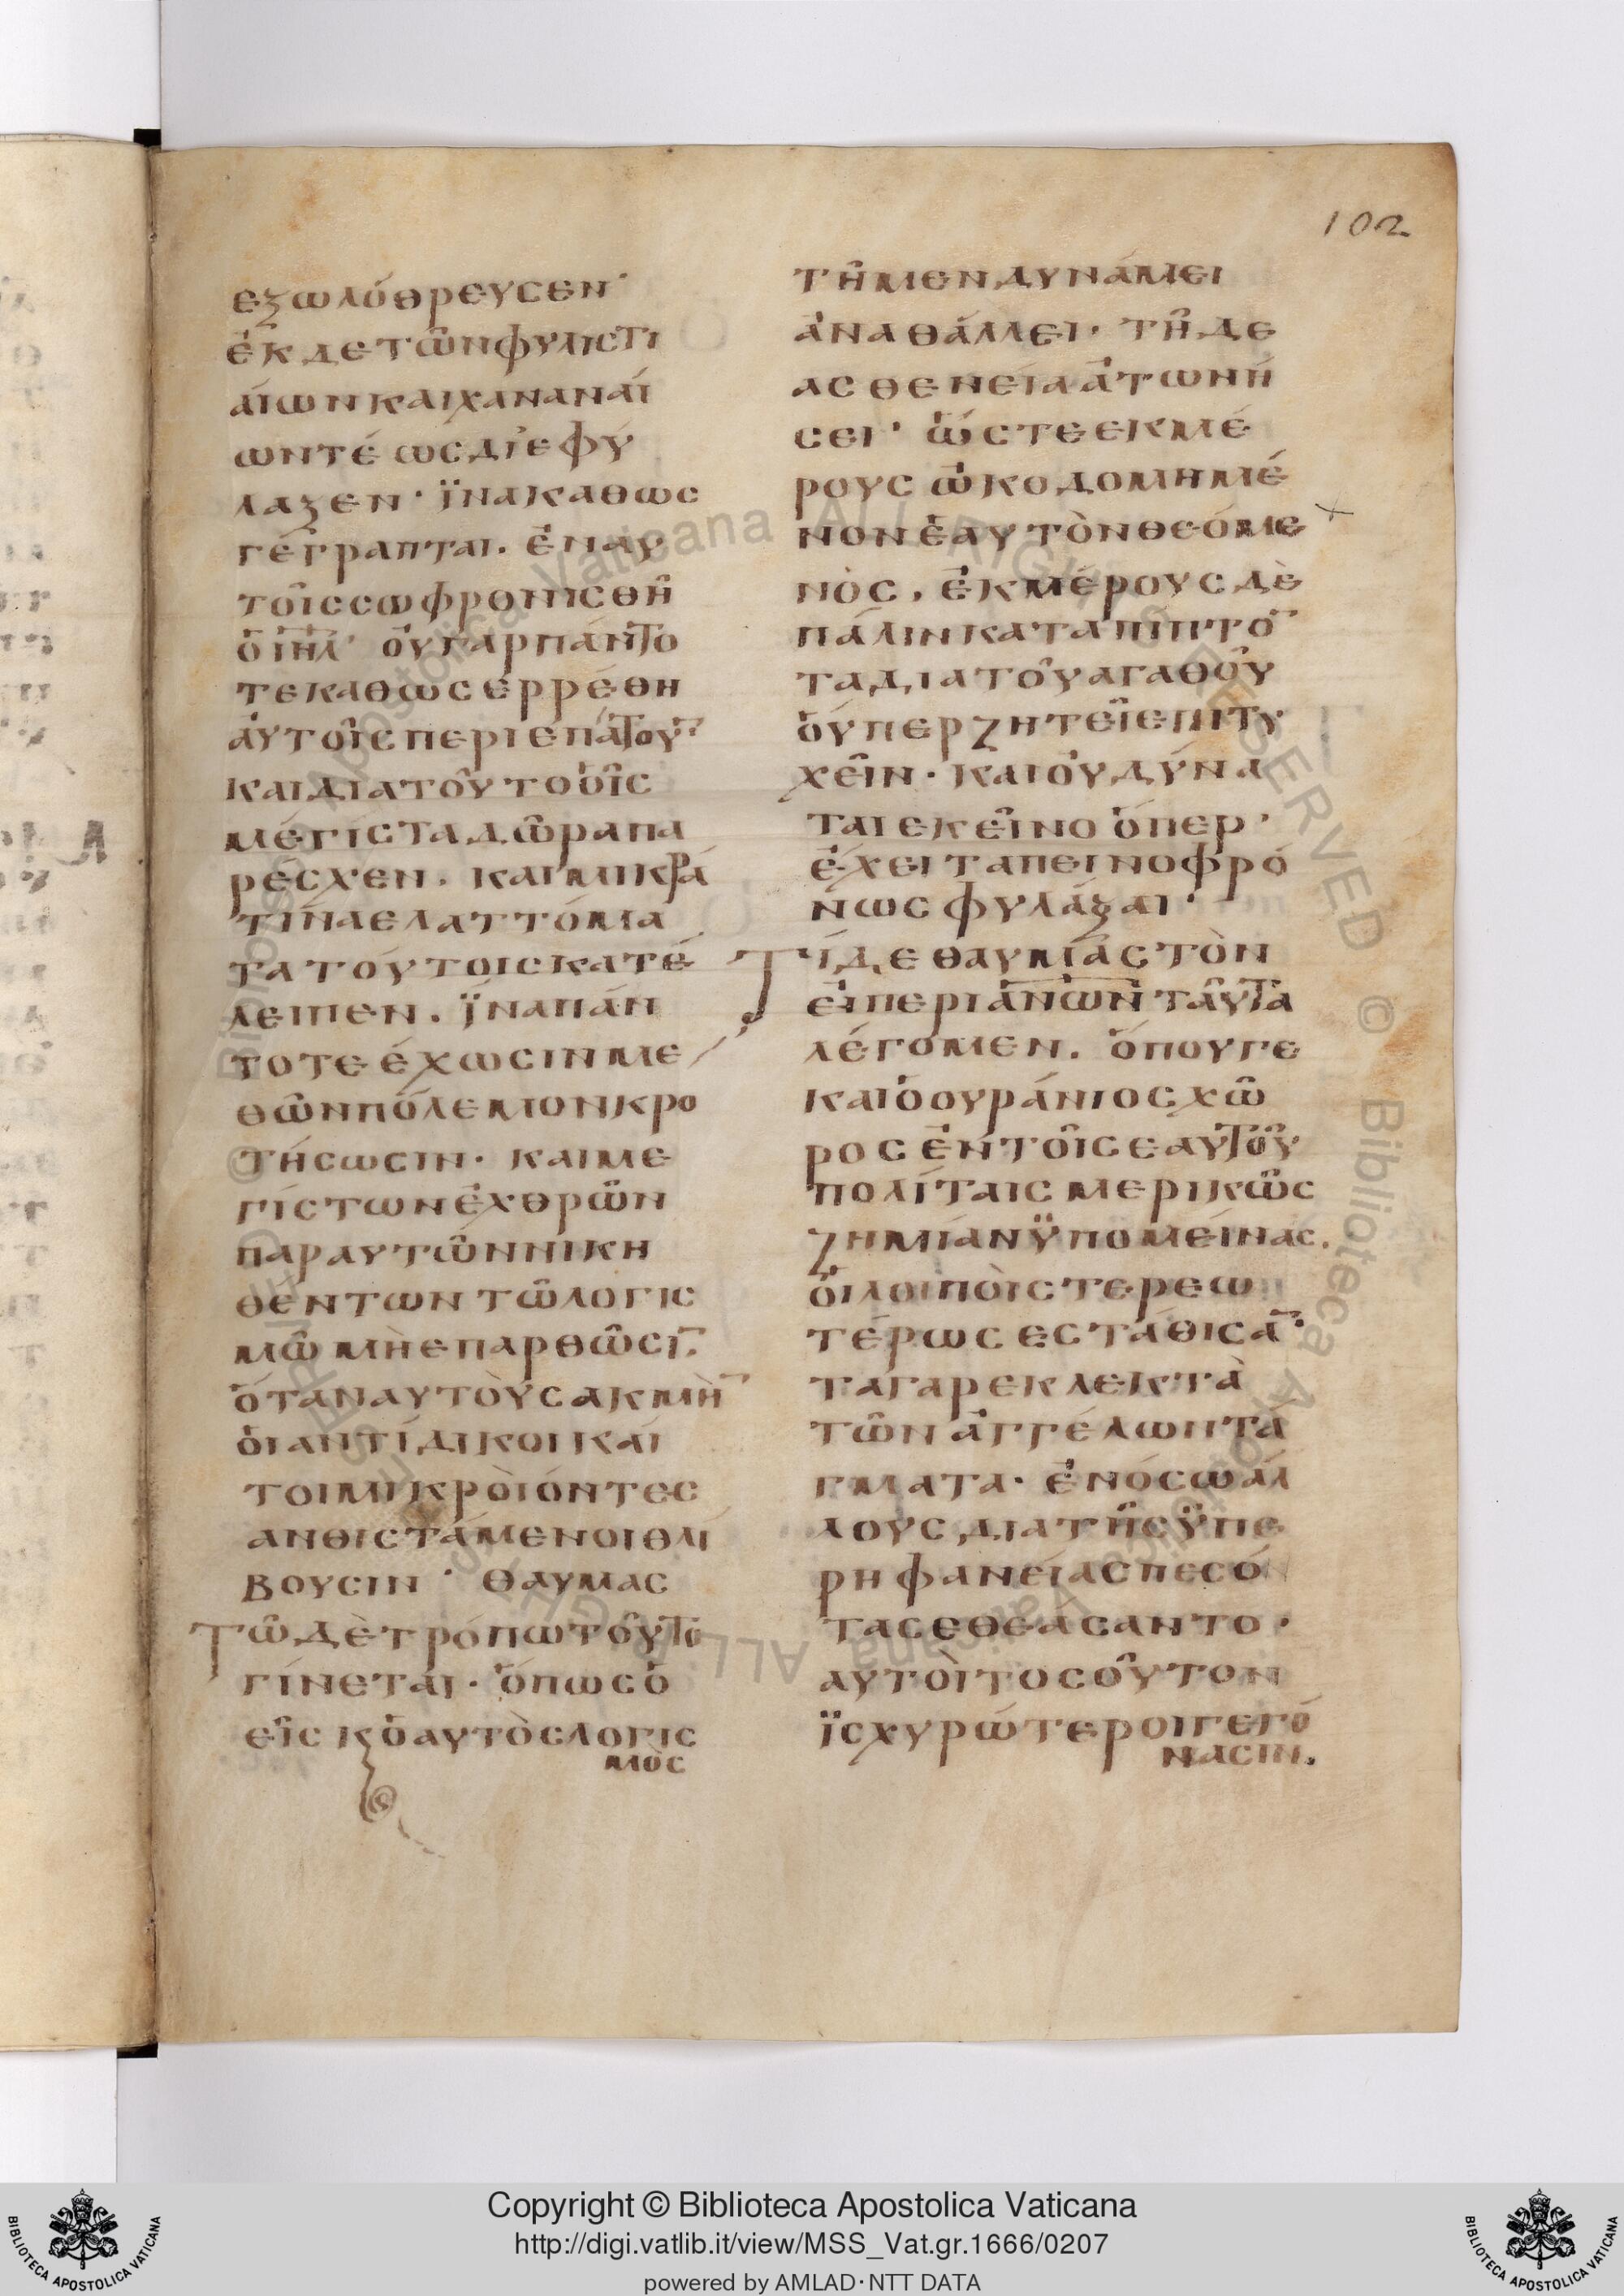 102
εξωλόθρευσεν·
ἐκδετῶνφυλιστι
άιωνκαιχανανάι
ωντέωςδιεφύ
λαξεν· ϊνακαθωσ
γέγραπται. ἐναυ
τοῖσσωφρονισθῆ
ὁ ιηλ· ὀυγαρπάντο
τεκαθωσερρέθη
ἀυτοῖσπεριεπάτουν
καιδιατοῦτοὁῖσ
μέγισταδῶραπα
ρέσχεν. καιμικρά
τιναελαττόμα
τατούτοισκατέ
λειπεν. ϊναπάν
τοτεέχωσινμε
θῶνπόλεμονκρο
τήσωσιν· καιμε
γίστωνἐχθρῶν
παραυτῶννικη
θέντωντῶλογισ
μῶμὴεπαρθῶσιν.
ὅταναυτὸυσακμὴν
ὁιαντίδικοικάι
τοιμικρὸιόντεσ
ανθιστάμενοιθλί
βουσιν· θαυμασ
Τῶδὲτρόπωτοῦτο
γίνεται· ὅπωσὁ
εῖσκὁαυτὸσλογισ
μὸσ
τῆμενδυνάμει
ἀναθάλλει· τῆδε
ασθενείαἀτωνή
σει· ὥστεεκμέ
ρουσὠκοδομημέ
νονἑαυτὸνθεόμε
νὸσ. ἐκμέρουσδὲ
πάλινκαταπίπτον
ταδιατοῦαγαθοῦ
ὁύπερζητεῖεπιτυ
χεῖν· καιὀυδύνα
ταιεκεῖνοὅπερ·
ἔχειταπεινοφρό
νωσφυλάξαι·
Τίδεθαυμάσ τὸν
εἰπεριανωνταῦτα
λέγομεν. ὅπουγε
καιὁουράνιοσχῶ
ροσἐντοῖσεαυτοῦ
πολίταισμερικῶσ
ζημίανϋπομείνασ.
ὁιλοιπὸιστερεω
τέρωσεστάθισαν·
ταγαρεκλεκτὰ
τῶνἀγγέλωντά
γματα· ἐνόσωάλ
λουσδιατῆσϋπε
ρηφανείασπεσόν
τασεθεάσαντο·
αυτὸιτοσοῦτον
ϊσχυρώτεροιγεγό
νασιν.
Copyright © Biblioteca Apostolica Vaticana
http://digi.vatlib.it/view/MSS_Vat.gr.1666/0207
powered by AMLAD·NTT DATA